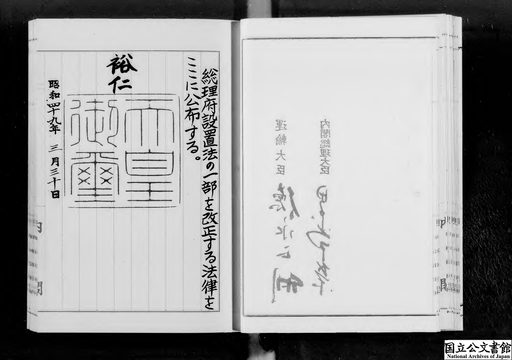 総理府設置法の一部を改正する法律を
ここに公布する。
裕仁
天皇
御璽
昭和四十九年 三月三十日
内閣総理大臣
運輸大臣
国立公文書館
National Archives of Japan